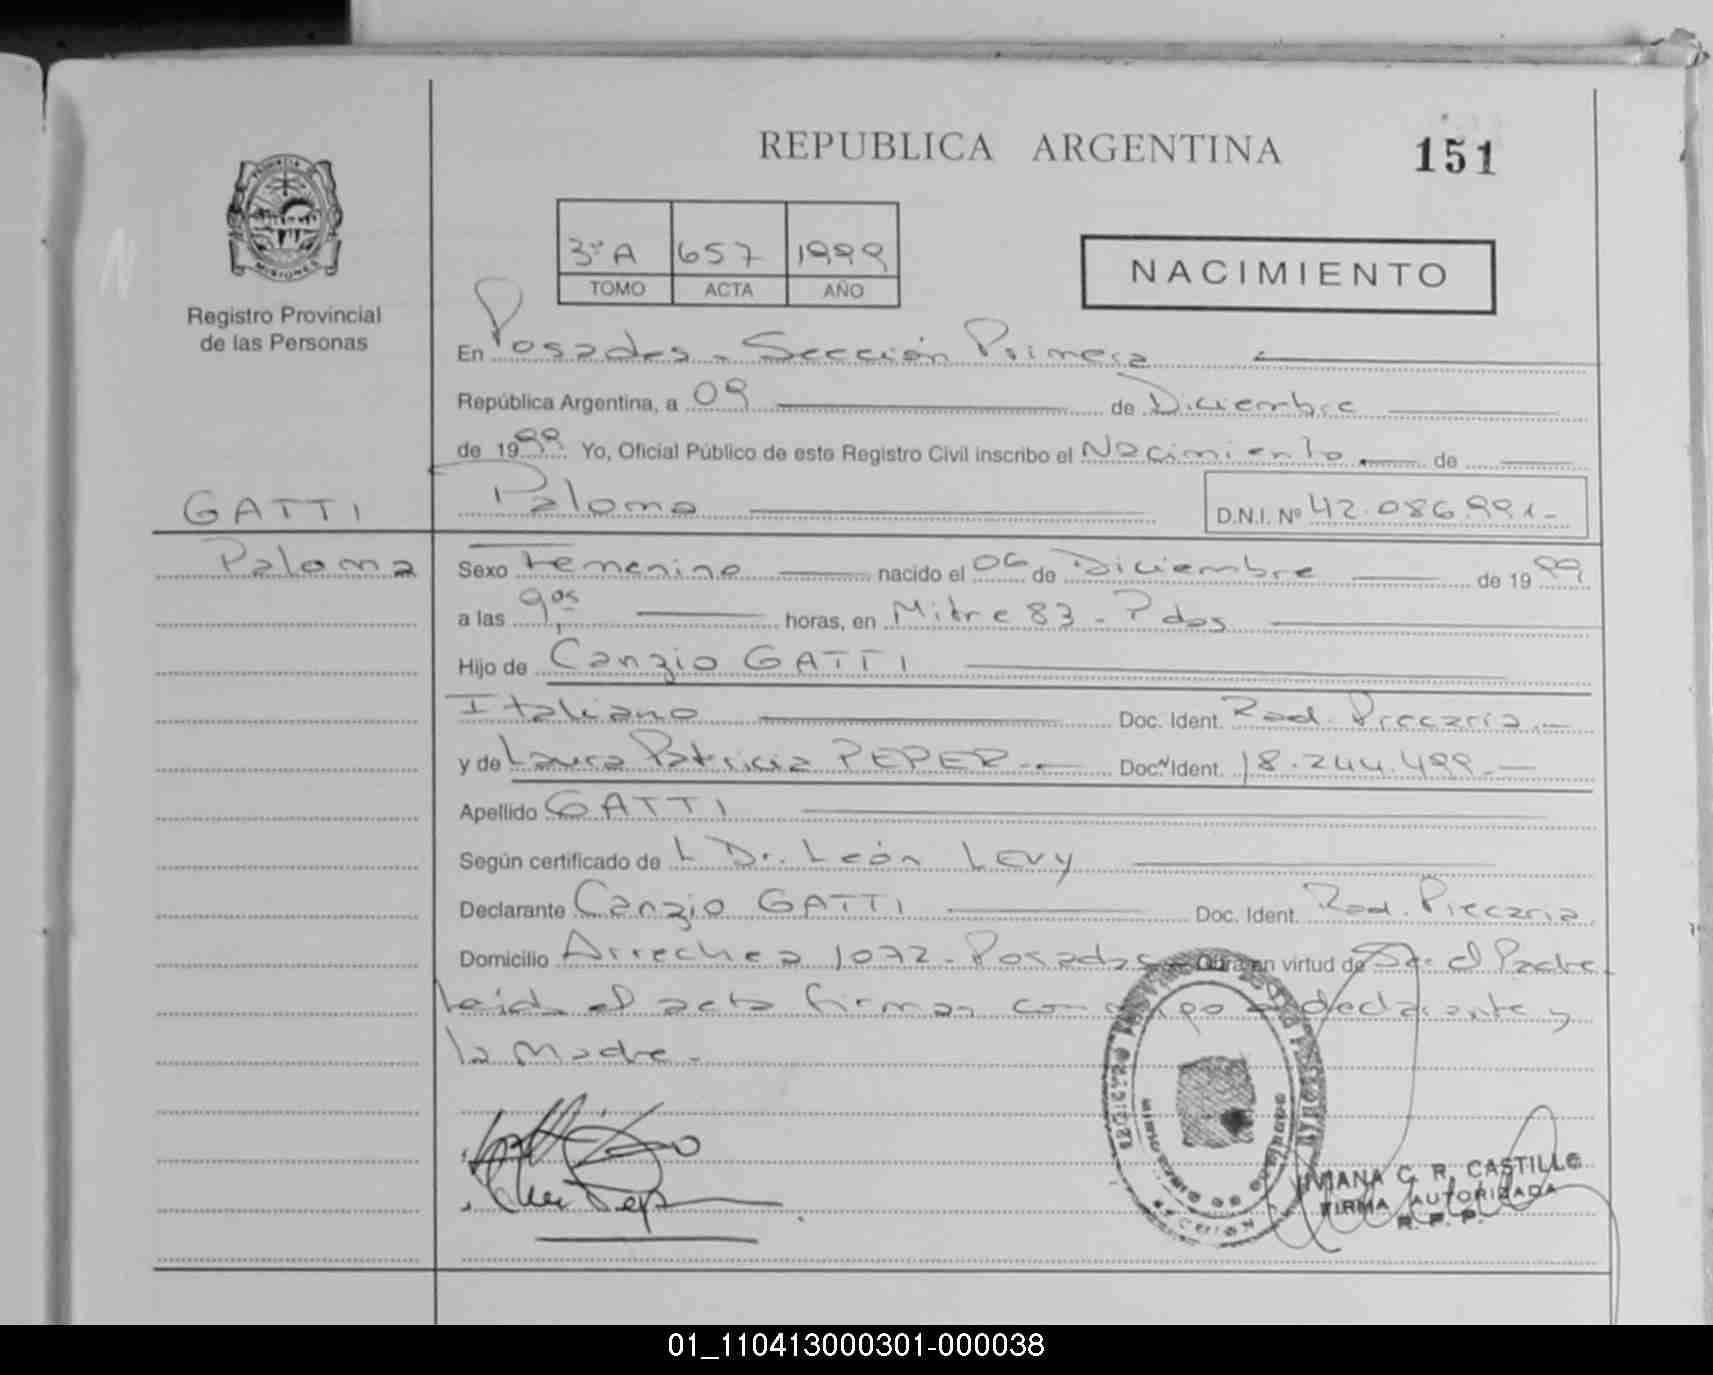 REPUBLICA ARGENTINA
151
PROVINCIA
MISIONES
Registro Provincial
de las Personas
3º A 657 1999
TOMO ACTA AÑO
NACIMIENTO
En Posadas - Sección Primera
República Argentina, a 09 de Diciembre
de 1999 Yo, Oficial Público de este Registro Civil inscribo el Nacimiento de
GATTI
Paloma
D.N.I. Nº 42.086.991.-
Paloma
Sexo Femenino nacido el 06 de Diciembre de 1999
a las 9,05 horas, en Mitre 83 - Pdas
Hijo de Canzio GATTI
Italiano Doc. Ident. Rad. Precaria.-
y de Laura Patricia PEPER.- Doc. Ident. 18.244.499.-
Apellido GATTI
Según certificado de L Dr. León Levy
Declarante Canzio GATTI Doc. Ident. Rad. Precaria
Domicilio Arrechea 1072 - Posadas Obra en virtud de Ser el Padre
Leida el acta firman conmigo el declarante y
la Madre.-
C. R. CASTILLO
FIRMA AUTORIZADA
R. P. P.
01_110413000301-000038